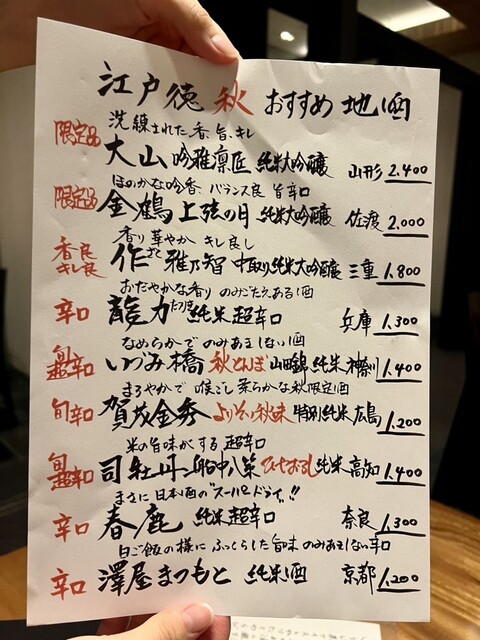 江戸徳 秋 おすすめ 地酒
洗練された香、旨、キレ
限定品 大山 吟雅凛匠 純米大吟醸 山形 2.400
ほのかな吟香 バランス良 旨辛口
限定品 金鶴 上弦の月 純米大吟醸 佐渡 2.000
香り華やか キレ良し
香良 キレ良 作 ざく 雅乃智 中取り純米大吟醸 三重 1.800
おだやかな香り のみごたえある酒
辛口 龍力 純米 超辛口 兵庫 1.300
なめらかで のみあきしない酒
旬 超辛口 いづみ橋 秋とんぼ 山田錦 純米 神奈川 1.400
まろやかで 喉ごし 柔らかな秋限定酒
旬 辛口 賀茂金秀 特別純米 広島 1.200
米の旨味がする 超辛口
旬 超辛口 司牡丹 船中八策 ひやおろし 純米 高知 1.400
まさに 日本酒の"スーパードライ"!!
辛口 春鹿 純米 超辛口 奈良 1.300
白ご飯の様に ふっくらした旨味 のみあきしない辛口
辛口 澤屋まつもと 純米酒 京都 1.200